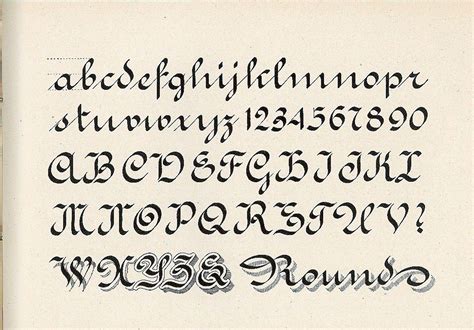 abcdefghijklmnopr
stuvwxyz 1234567890
ABCDEFGHIJKL
MNOPQRSTUV?
WXYZ& Round